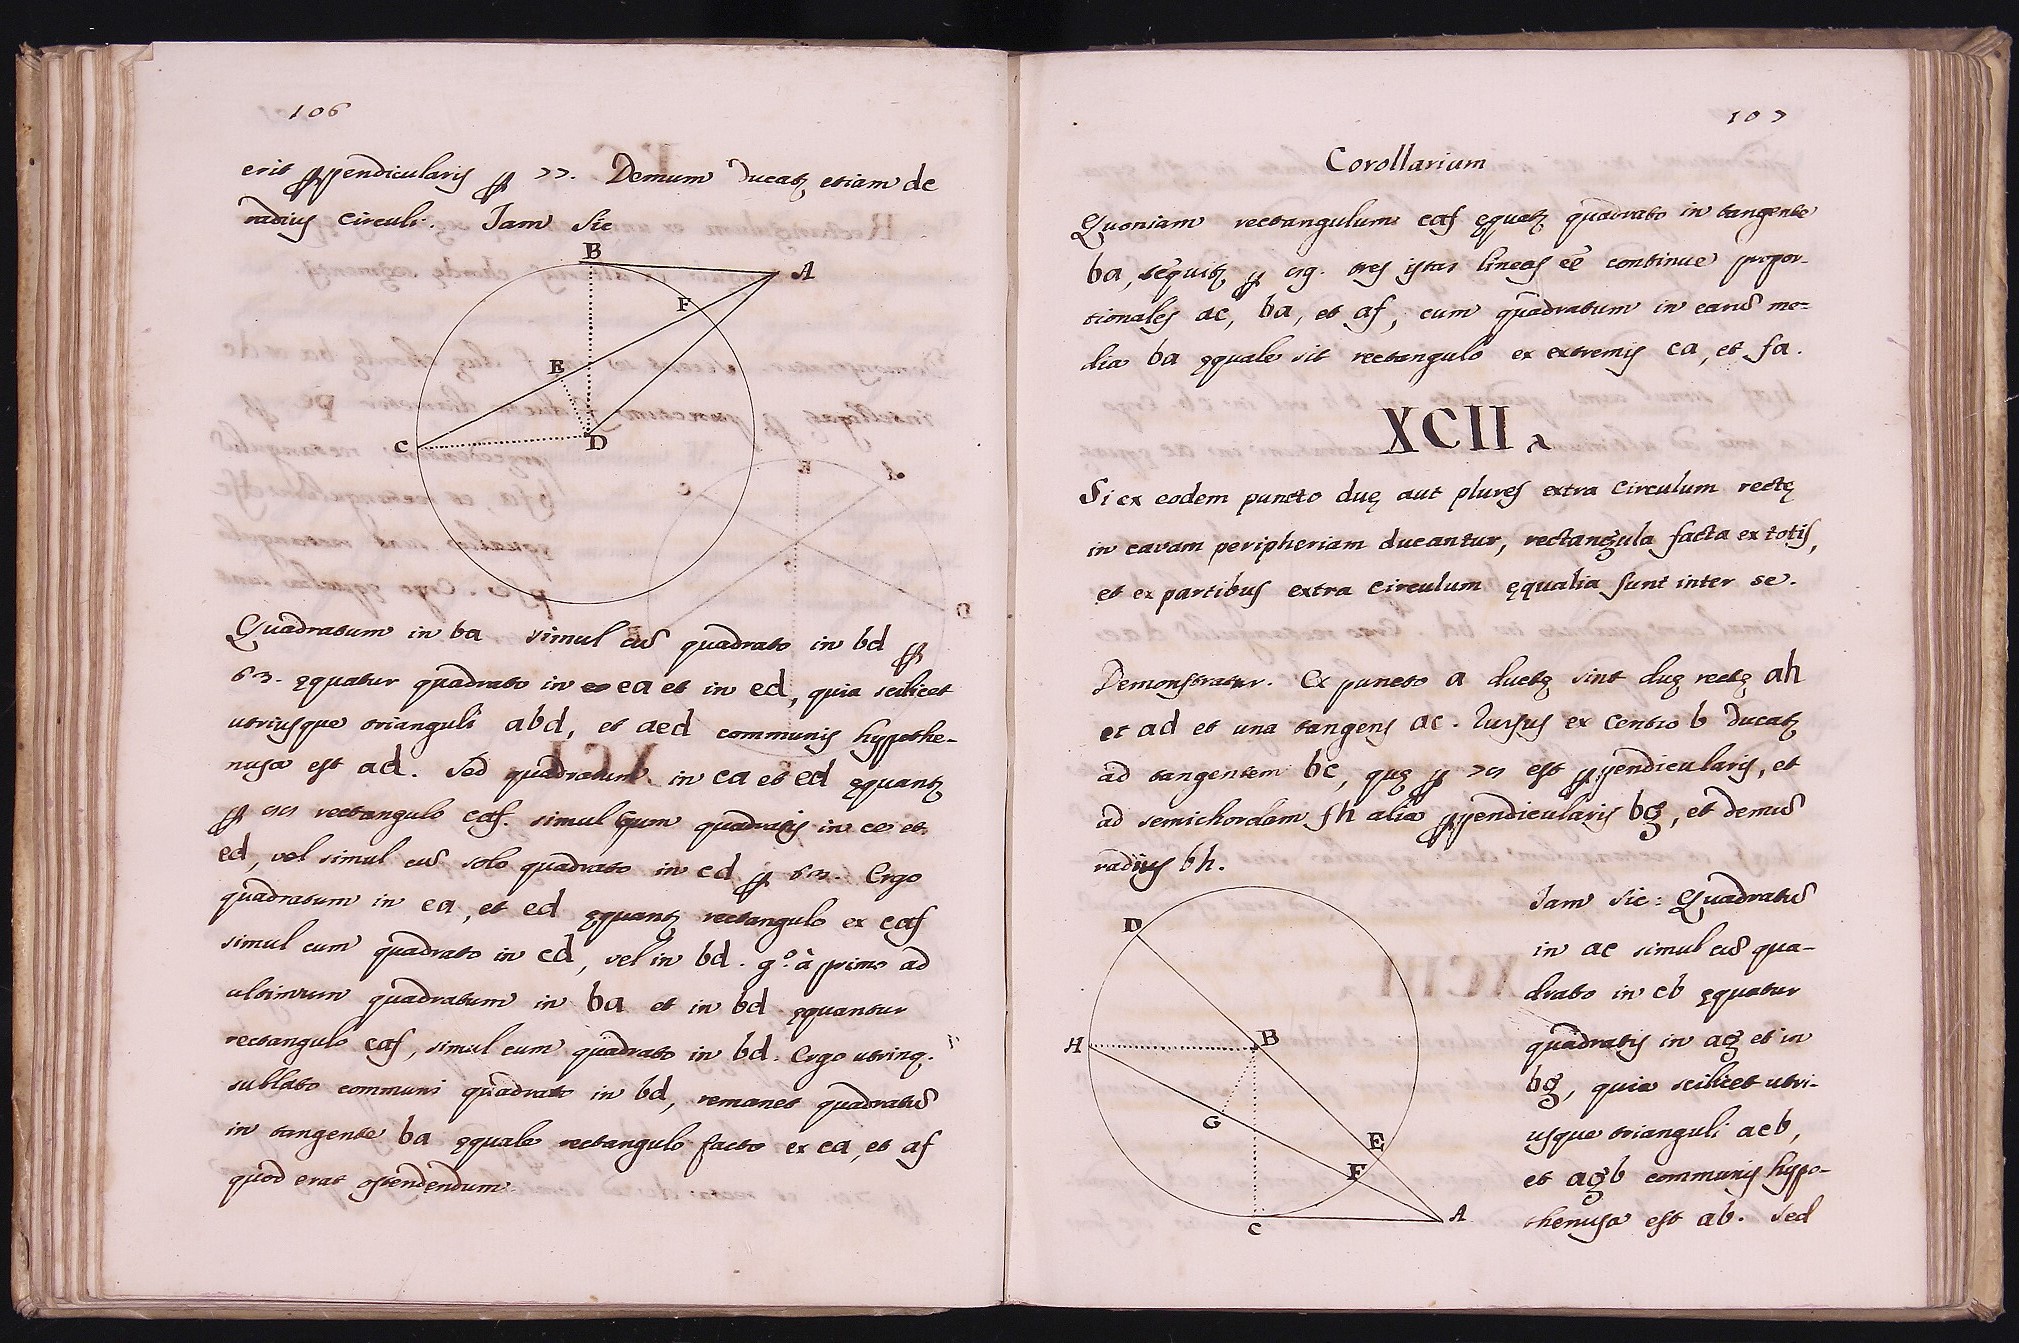 106
erit ꝑpendicularis ꝑ 77. Demum ducatꝫ etiam dc
radius circuli. Jam sic
B
A
F
E
C
D
Quadratum in ba simul cũ quadrato in bd ꝑ
63. ęquatur quadrato in ea et in ed, quia scilicet
utriusque trianguli abd, et aed communis hypothe-
nusa est ad. Sed quadratum in ea et ed ęquantꝫ
ꝑ rectangulo caf. simul cum quadratis in ce et
ed, vel simul cũ solo quadrato in cd ꝑ 63. Ergo
quadratum in ea, et ed ęquantꝫ rectangulo ex caf
simul cum quadrato in cd, vel in bd. g.º à primo ad
ultimum quadratum in ba et in bd ęquantur
rectangulo caf, simul cum quadrato in bd. Ergo utrinq.
sublato communi quadrato in bd, remanet quadratũ
in tangente ba ęquale rectangulo facto ex ca, et af
quod erat ostendendum.
107
Corollarium
Quoniam rectangulum caf ęquatꝫ quadrato in tangente
ba, sequitꝫ ꝑ tres istas lineas eē continue propor-
tionales ac, ba, et af, cum quadratum in earũ me-
dia ba ęquale sit rectangulo ex extremis ca, et fa.
XCII a
Si ex eodem puncto duę aut plures extra circulum rectę
in cavam peripheriam ducantur, rectangula facta ex totis,
et ex partibus extra circulum ęqualia sunt inter se.
Demonstratur. Ex puncto a ductę sint duę rectę ah
et ad et una tangens ac. Rursus ex centro b ducatꝫ
ad tangentem bc, quę ꝑ 79 est ꝑpendicularis, et
ad semichordam fh alia ꝑpendicularis bg, et demũ
radius bh.
Jam sic: Quadratũ
in ac simul cũ qua-
drato in cb ęquatur
quadratis in ag et in
bg, quia scilicet utri-
usque trianguli acb,
et agb communis hypo-
thenusa est ab. Sed
D
H
B
G
E
F
C
A